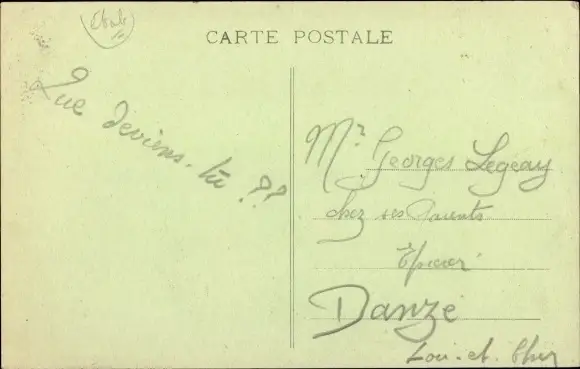 CARTE POSTALE
Que deviens-tu ??
Mr Georges Legeay
chez ses Parents
Epicier
Danzé
Loir-et-Cher